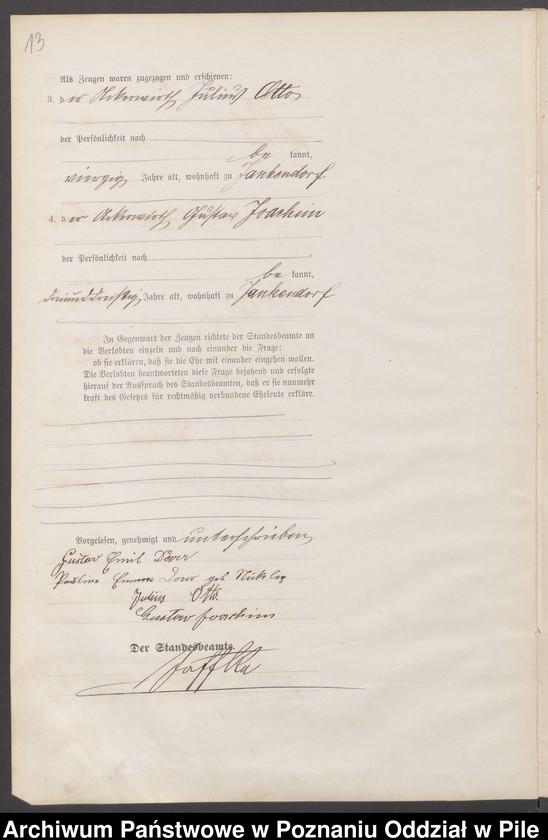 13
Als Zeugen waren zugezogen und erschienen:
3. der Ackerwirth Julius Otto
der Persönlichkeit nach
be kannt,
vierzig Jahre alt, wohnhaft zu Jankendorf
4. der Ackerwirth Gustav Joachim
der Persönlichkeit nach
be kannt,
dreiunddreißig Jahre alt, wohnhaft zu Jankendorf
In Gegenwart der Zeugen richtete der Standesbeamte an
die Verlobten einzeln und nach einander die Frage:
ob sie erklären, daß sie die Ehe mit einander eingehen wollen.
Die Verlobten beantworteten diese Frage bejahend und erfolgte
hierauf der Ausspruch des Standesbeamten, daß er sie nunmehr
kraft des Gesetzes für rechtmäßig verbundene Eheleute erkläre.
Vorgelesen, genehmigt und unterschrieben
Gustav Emil
Pauline Emma geb
Julius Otto.
Gustav Joachim
Der Standesbeamte.
Archiwum Państwowe w Poznaniu Oddział w Pile